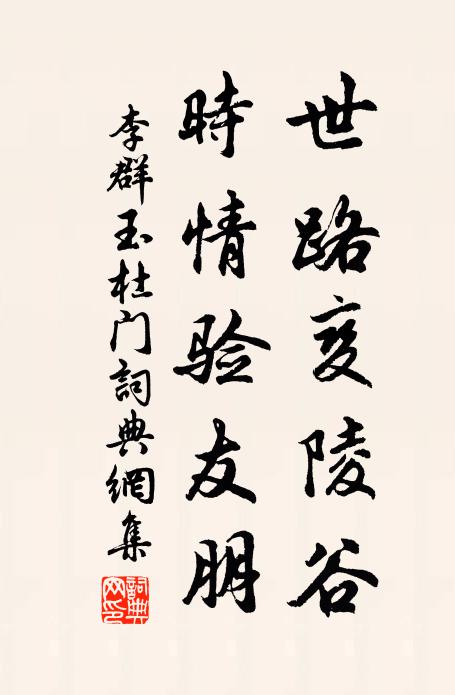 世路变陵谷
時情验友朋
李群玉杜门詞典網集
詞典网印